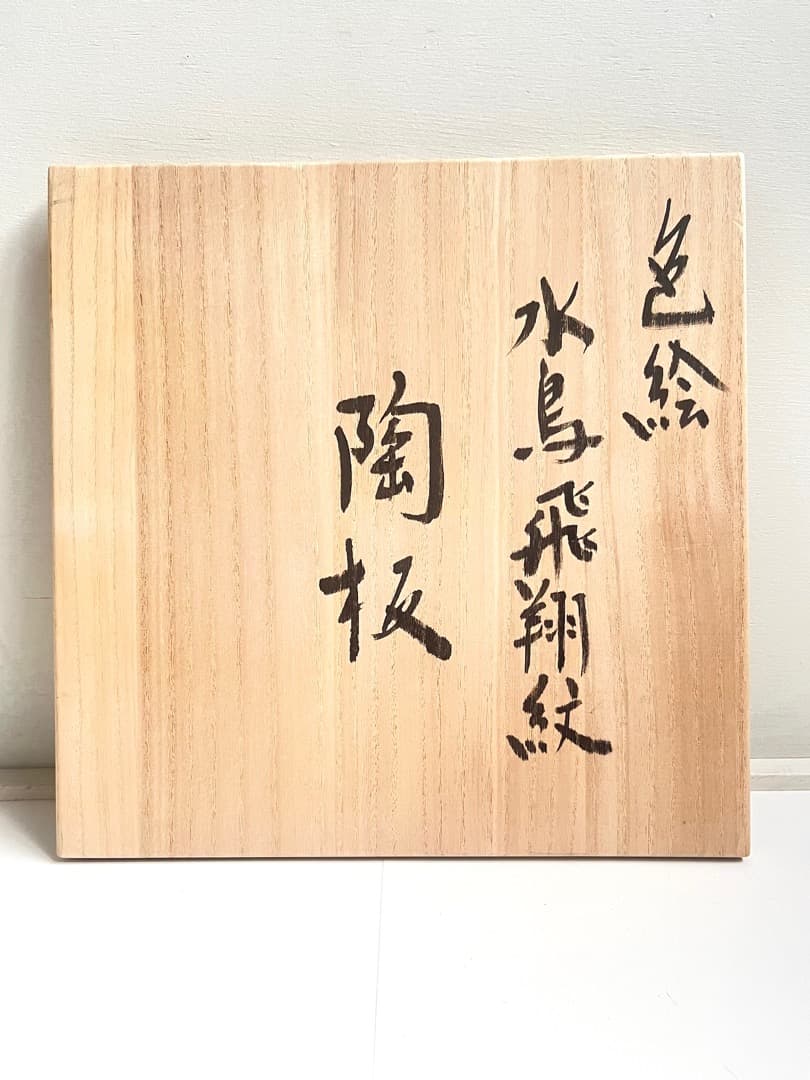 色絵
水鳥飛翔紋
陶板